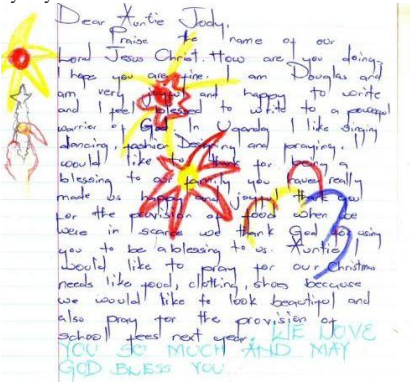 Dear Auntie Judy,
Praise the name of our
Lord Jesus Christ. How are you doing,
I hope you are fine. I am Douglas and
am very joyful and happy to write
and I feel blessed to write to a powerful
warrior of God In Uganda I like singing
dancing, fashion and praying,
would like to thank for being a
blessing to our family, you have really
made us happy and joyful I thank you
for the provision of food when we
were in scarce we thank God for using
you to be a blessing to us. Auntie
would like to pray for our Christmas
needs like food, clothing, shoes because
we would like to look beautiful and
also pray for the provision of
school fees next year. WE LOVE
YOU SO MUCH AND MAY
GOD BLESS YOU